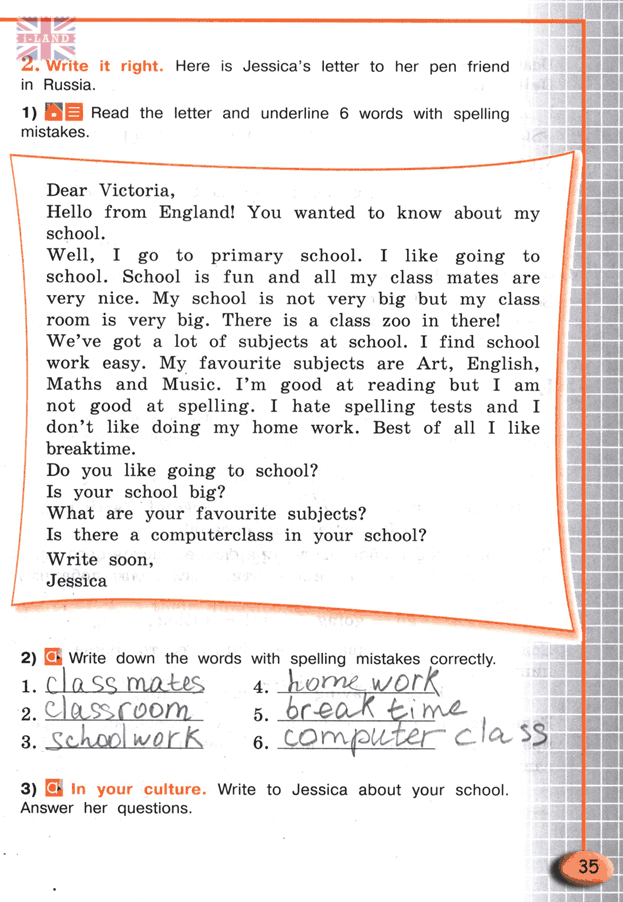 i-LAND
2. Write it right. Here is Jessica's letter to her pen friend
in Russia.
1) Read the letter and underline 6 words with spelling
mistakes.
Dear Victoria,
Hello from England! You wanted to know about my
school.
Well, I go to primary school. I like going to
school. School is fun and all my class mates are
very nice. My school is not very big but my class
room is very big. There is a class zoo in there!
We've got a lot of subjects at school. I find school
work easy. My favourite subjects are Art, English,
Maths and Music. I'm good at reading but I am
not good at spelling. I hate spelling tests and I
don't like doing my home work. Best of all I like
breaktime.
Do you like going to school?
Is your school big?
What are your favourite subjects?
Is there a computerclass in your school?
Write soon,
Jessica
2) Write down the words with spelling mistakes correctly.
1. classmates 4. homework
2. classroom 5. break time
3. schoolwork 6. computer class
3) In your culture. Write to Jessica about your school.
Answer her questions.
35